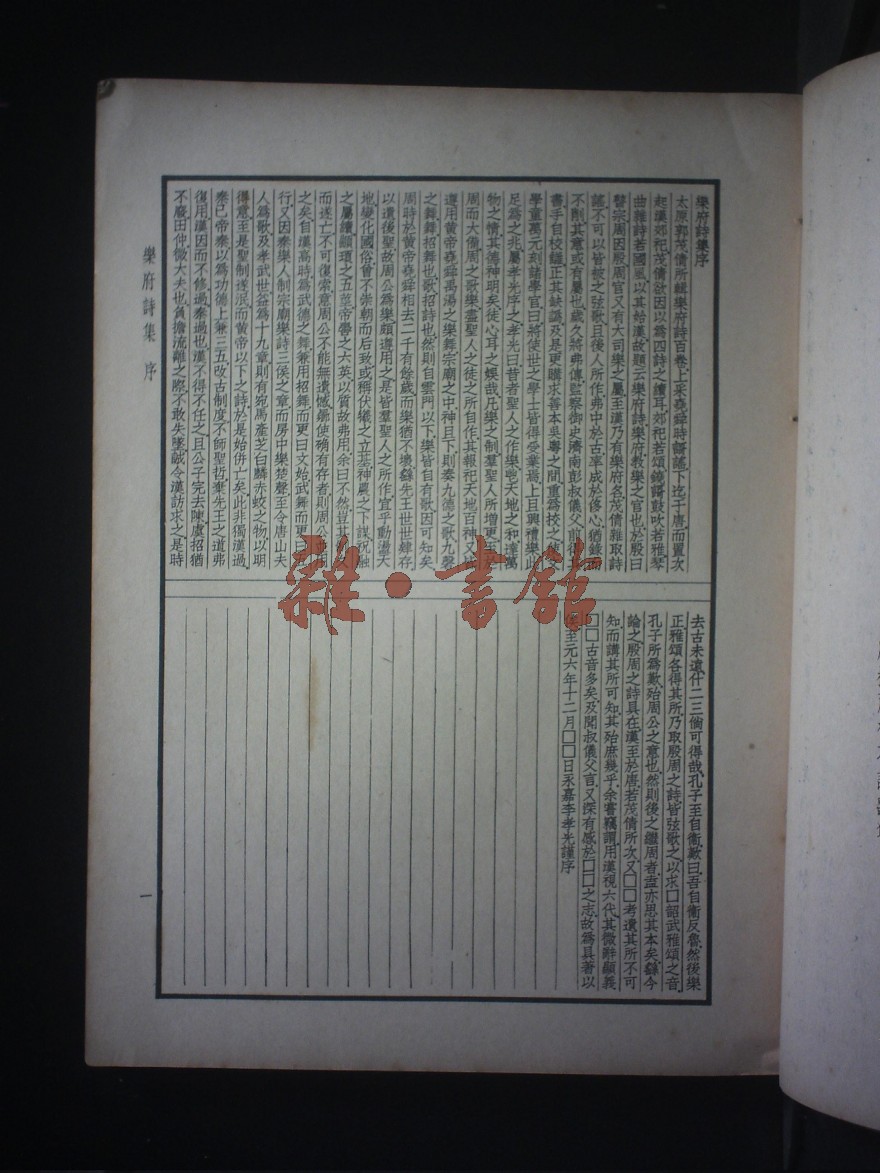 樂府詩集序
太原郭茂倩所緝樂府詩百卷上采堯舜時謌謡下迄于唐而置次
起漢郊祀茂倩欲因以為四詩之續耳郊祀若頌鐃謌鼓吹若雅琴
曲雜詩若國風以其始漢故題云樂府詩樂府教樂之官也於殷曰
瞽宗周因殷周官又有大司樂之屬至漢乃有樂府名茂倩雜取詩
謡不可以皆被之弦歌且後人所作弗中於古率成於侈心猶錄而
不削其意或有屬也歲久將弗傳監察御史濟南彭叔儀父
書手自校讎正其缺譌及是更購求善本吳粵之間重為校之
學童萬元刻諸學官曰將使世之學士皆得受業焉上且興禮樂此
足為之兆屬孝光序之孝光曰昔者聖人之作樂
天地之和達萬
物之情其德神明矣徒心耳之娛哉凡樂之制羣聖人所增更
周而大備周之歌樂盡聖人之徒之所自作其報祀天地百神又
遵用黃帝堯舜禹湯之樂舞宗廟之中神且下則奏九德之歌九磬
之舞舞招舞也歌招詩也然則自雲門以下樂皆自有歌因可知矣
周時於黃帝堯舜相去二千有餘歲而樂猶不
繇先王世世肄存
以遺後聖故周公為樂頗遵用之是皆羣聖人之所作宜乎動盪天
地變化國俗曾不崇朝而后致或稱伏犧之立基神農之下謀祝融
之屬續顓頊之五莖帝嚳之六英以質故弗用余曰不然豈其
而遂亡不可復索意周公不能無遺憾
使确有存者則周公
之矣自漢高時為武德之舞兼用招舞而更曰文始武舞而更曰五
行又因秦樂人制宗廟樂詩三侯之章而房中樂楚聲至令唐山夫
人為歌及孝武世益為十九章則有宛馬產芝白麟赤蛟之物以明
得意至是聖制遂泯而黃帝以下之詩於是始併亡矣此非獨漢過
秦已帝泰以為功德上兼三五改古制度不師聖哲棄先王之道弗
復用漢因而不修過秦過也漢不得不任之且公子完去陳虞招猶
不廢田仲微大夫也負擔流離之際不敢失墜誠令漢訪求之是時
去古未遠什二三倘可得哉孔子至自衞歎曰吾自衞反魯然後樂
正雅頌各得其所乃取殷周之詩皆弦歌之以求□韶武雅頌之音
孔子所為歎殆周公之意也然則後之繼周者盍亦思其本矣繇今
論之殷周之詩具在漢至於唐若茂倩所次又□□考遺其所不可
知而講其所可知其殆庶幾乎余嘗竊謂用漢視六代其微辭顯義
□□古音多矣及聞叔儀父言又深有感於□□之志故為具著以
至元六年十二月□□日永嘉李孝光謹序
樂府詩集 序
一
雜·書館